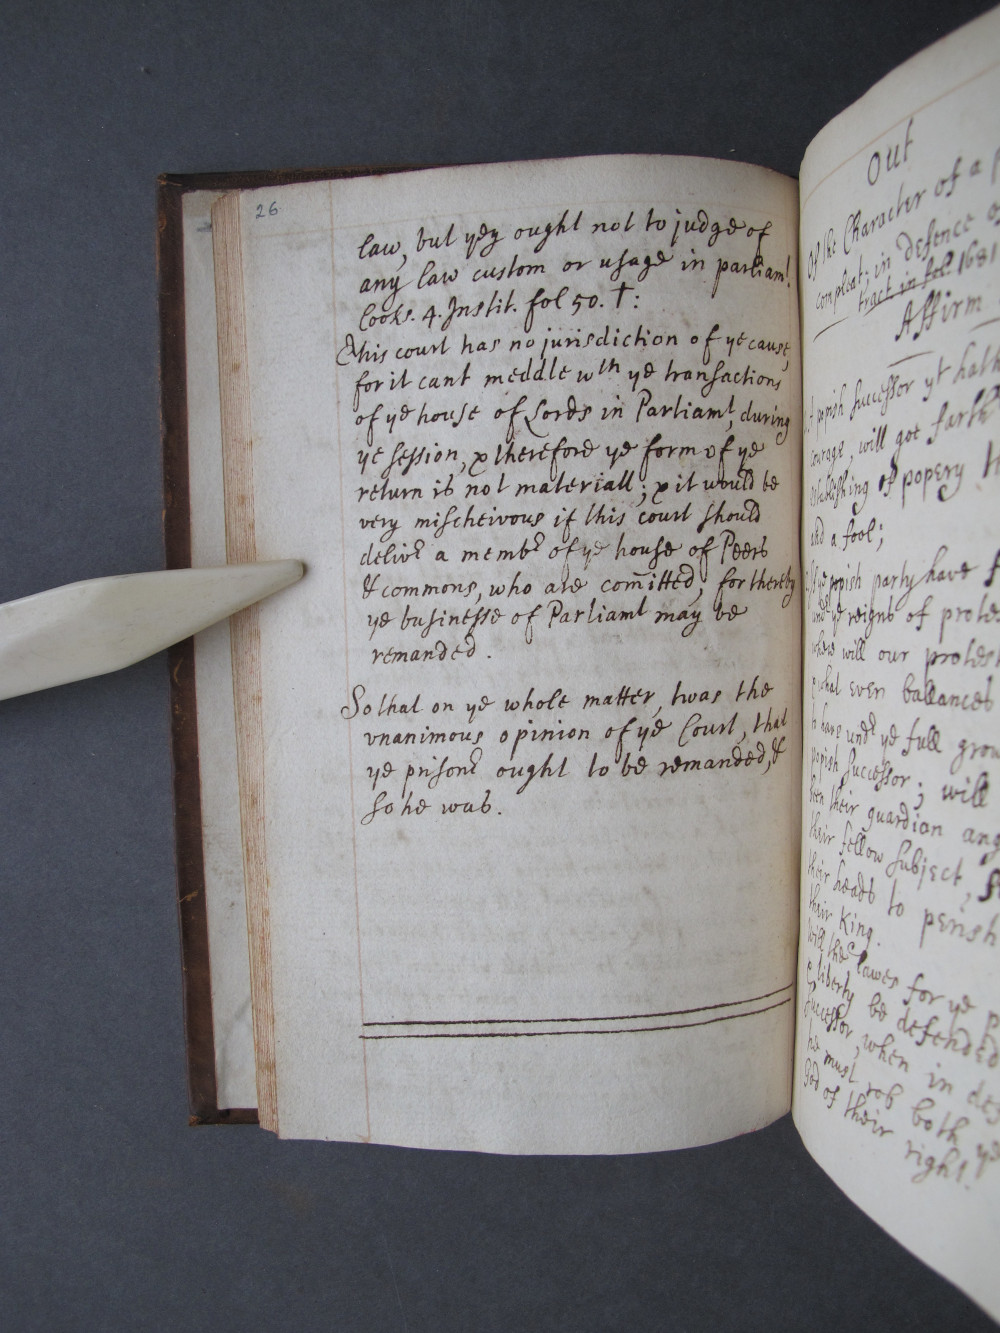 26
law, but yey ought not to judge of
any law custom or usage in parliamt.
Cooks. 4. Instit. fol 50. †:
This court has no jurisdiction of ye cause,
for it cant meddle wth ye transactions
of ye house of Lords in Parliamt, during
ye session, & therefore ye form of ye
return is not materiall; & it would be
very mischeivous if this court should
delivr a membr of ye house of Peers
& commons, who are com̄itted, for thereby
ye businesse of Parliamt may be
remanded.
So that on ye whole matter, twas the
vnanimous opinion of ye Court, that
ye prisonr ought to be remanded, &
so he was.
Out
Of the Character of a p
compleat; in defence o
tract in fol. 1681
Affirm
A popish successor yt hath
courage, will goe farth
establishing of popery th
and a fool;
If ye popish party have f
undr ye reigns of protes
where will our protest
& what even ballances
to have undr ye full grow
popish successor; will
then their guardian ang
their fellow subject, s
their heads to perish
their King.
Will the lawes for ye p
& liberty be defended
successor, when in de
he must rob both ye
God of their
right.